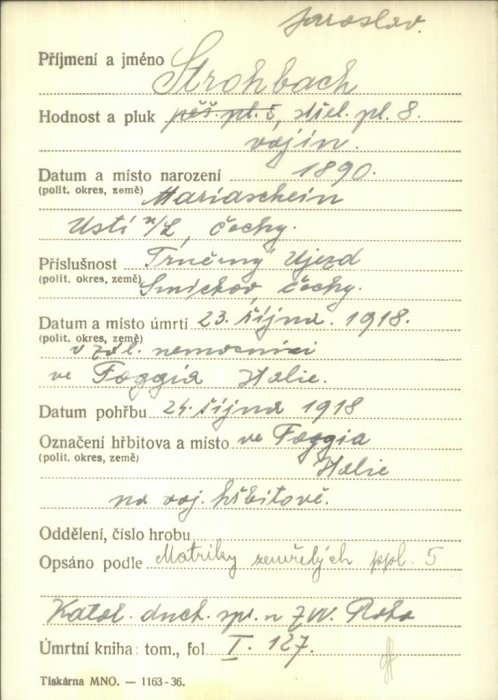 Jaroslav.
Příjmení a jméno Strohbach
Hodnost a pluk pěš. pl. 5, střel. pl. 8.
vojín.
Datum a místo narození 1890.
(polit. okres, země) Mariaschein
Ústí n/L, Čechy.
Příslušnost Trněný Újezd
(polit. okres, země) Smíchov, Čechy.
Datum a místo úmrtí 23. října 1918.
(polit. okres, země) v zál. nemocnici
ve Foggia Italie.
Datum pohřbu 24. října 1918
Označení hřbitova a místo ve Foggia
(polit. okres, země) Italie
na voj. hřbitově.
Oddělení, číslo hrobu
Opsáno podle Matriky zemřelých ppl. 5
Katol. duch. spr. n ZVV. Praha
Úmrtní kniha: tom., fol I. 127.
Tiskárna MNO. — 1163-36.